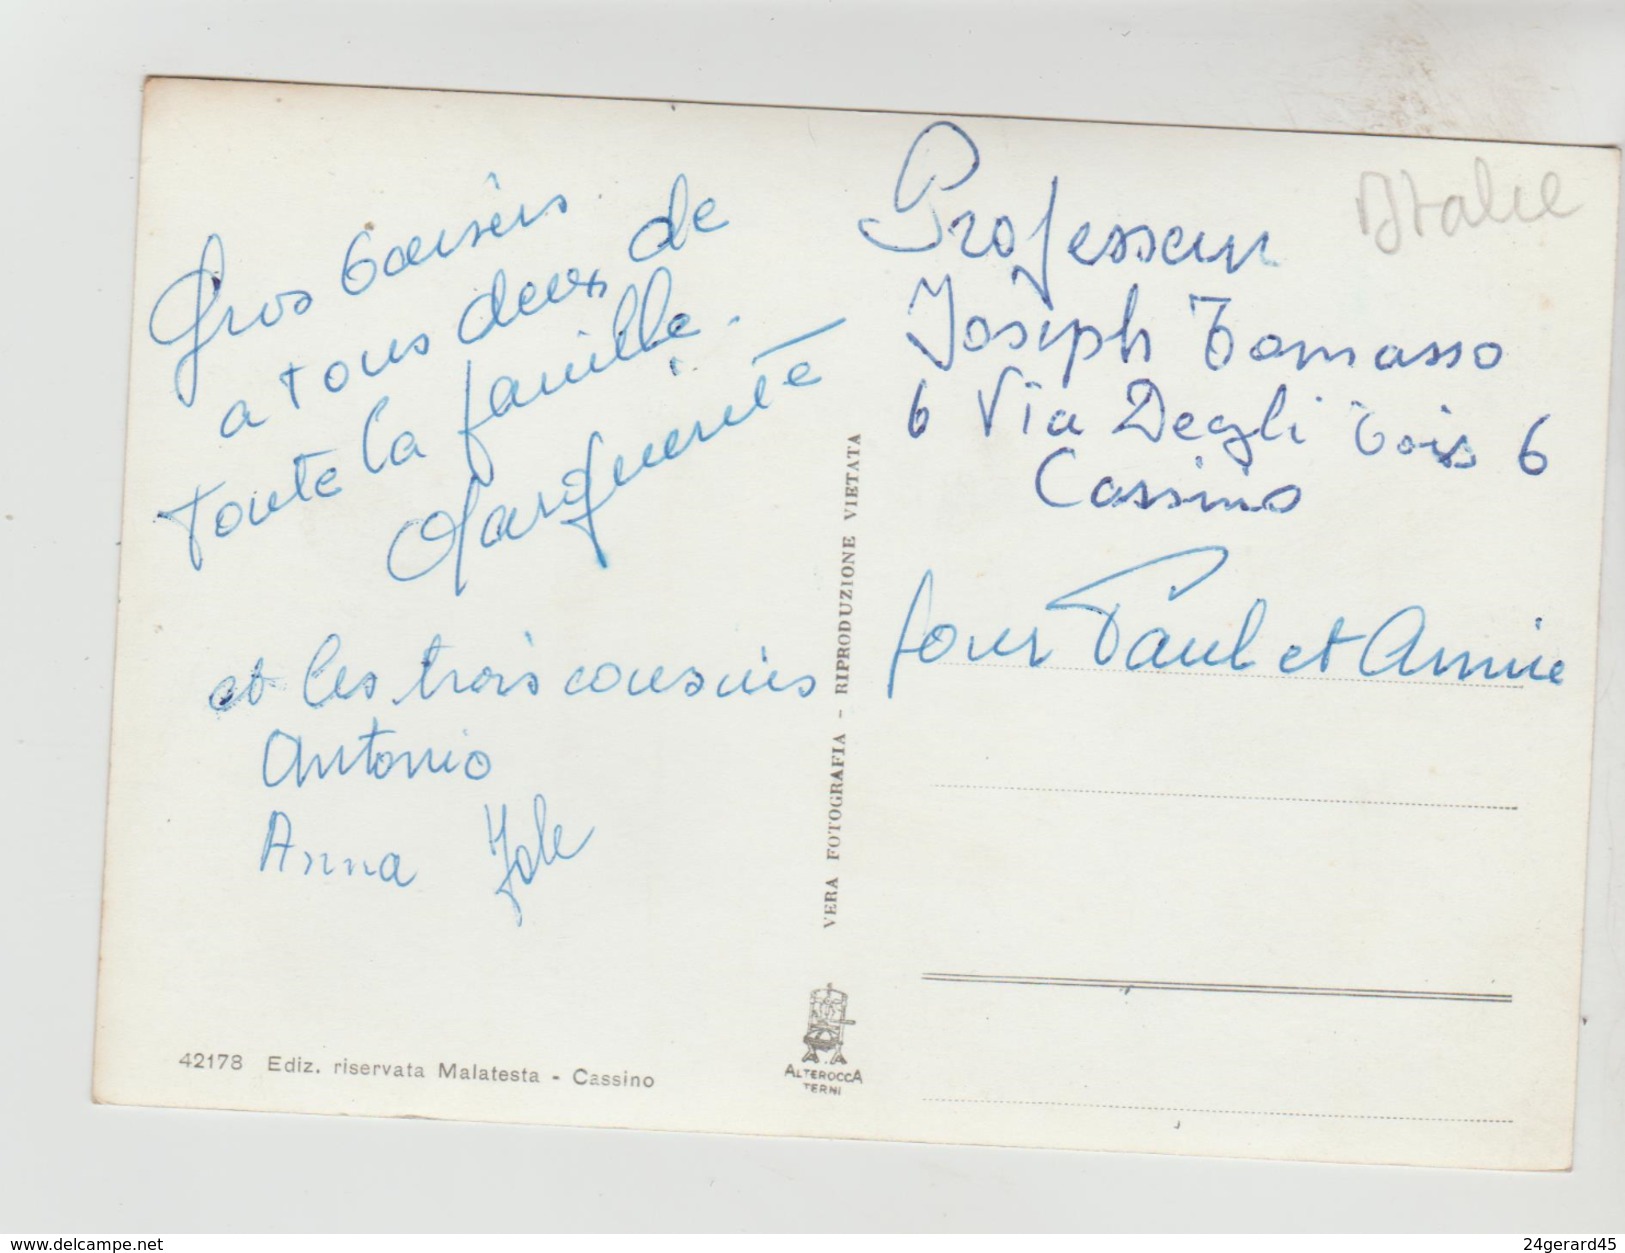 Gros baisers
a tous deux de
toute la famille.
Marguerite
et les trois cousins
Antonio
Anna Jole
42178 Ediz. riservata Malatesta - Cassino
VERA FOTOGRAFIA - RIPRODUZIONE VIETATA
ALTEROCCA
TERNI
Italie
Professeur
Joseph Tomasso
6 Via Degli 6
Cassino
pour Paul et Annie
www.delcampe.net
24gerard45